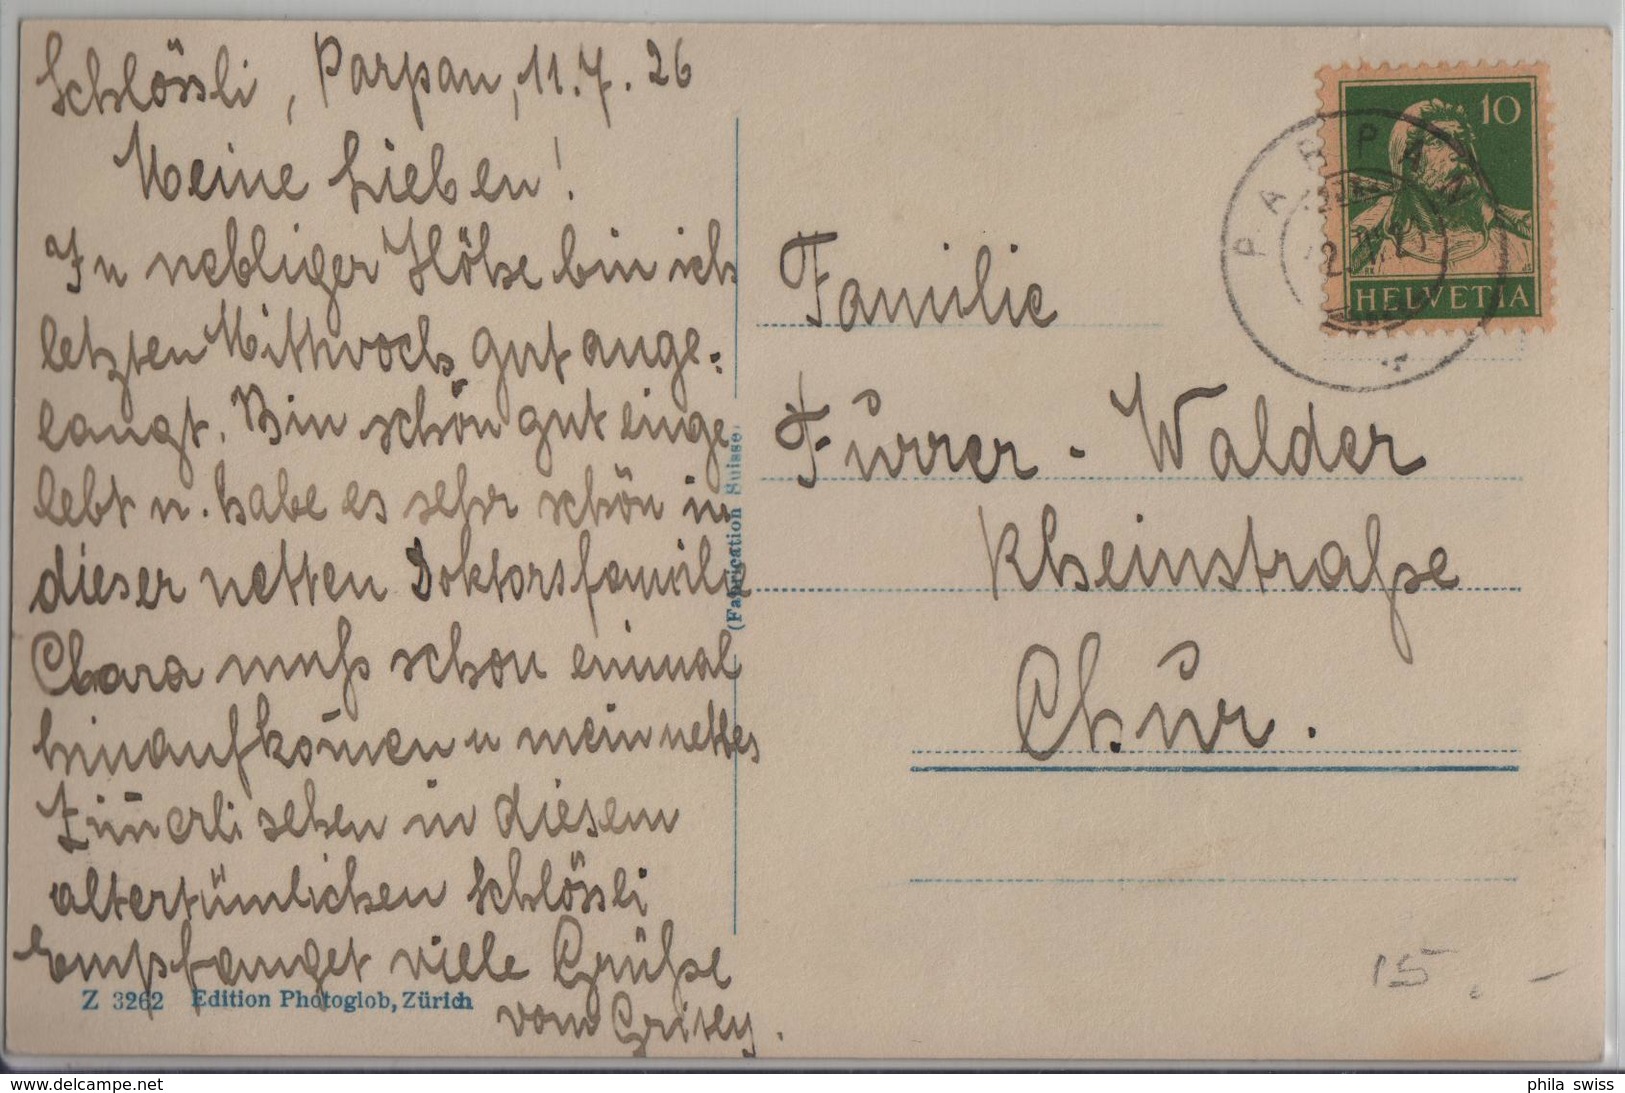 Schlössli, Parpan, 11.7.26
Meine Lieben!
In nebliger Höhe bin ich
letzten Mittwoch gut ange=
langt. Bin schön gut einge
lebt u. habe es sehr schön in
dieser netten Doktorsfamilie
Clara muß schon einmal
hinaufkom̄en u mein nettes
Zim̄erli sehen in diesem
altertümlichen Schlössli
Empfanget viele Grüße
vom
Familie
Furrer - Walder
Rheinstraße
Chur.
10
HELVETIA
PARPAN
(Fabrication Suisse)
Z 3262 Edition Photoglob, Zürich
15.-
www.delcampe.net
phila swiss